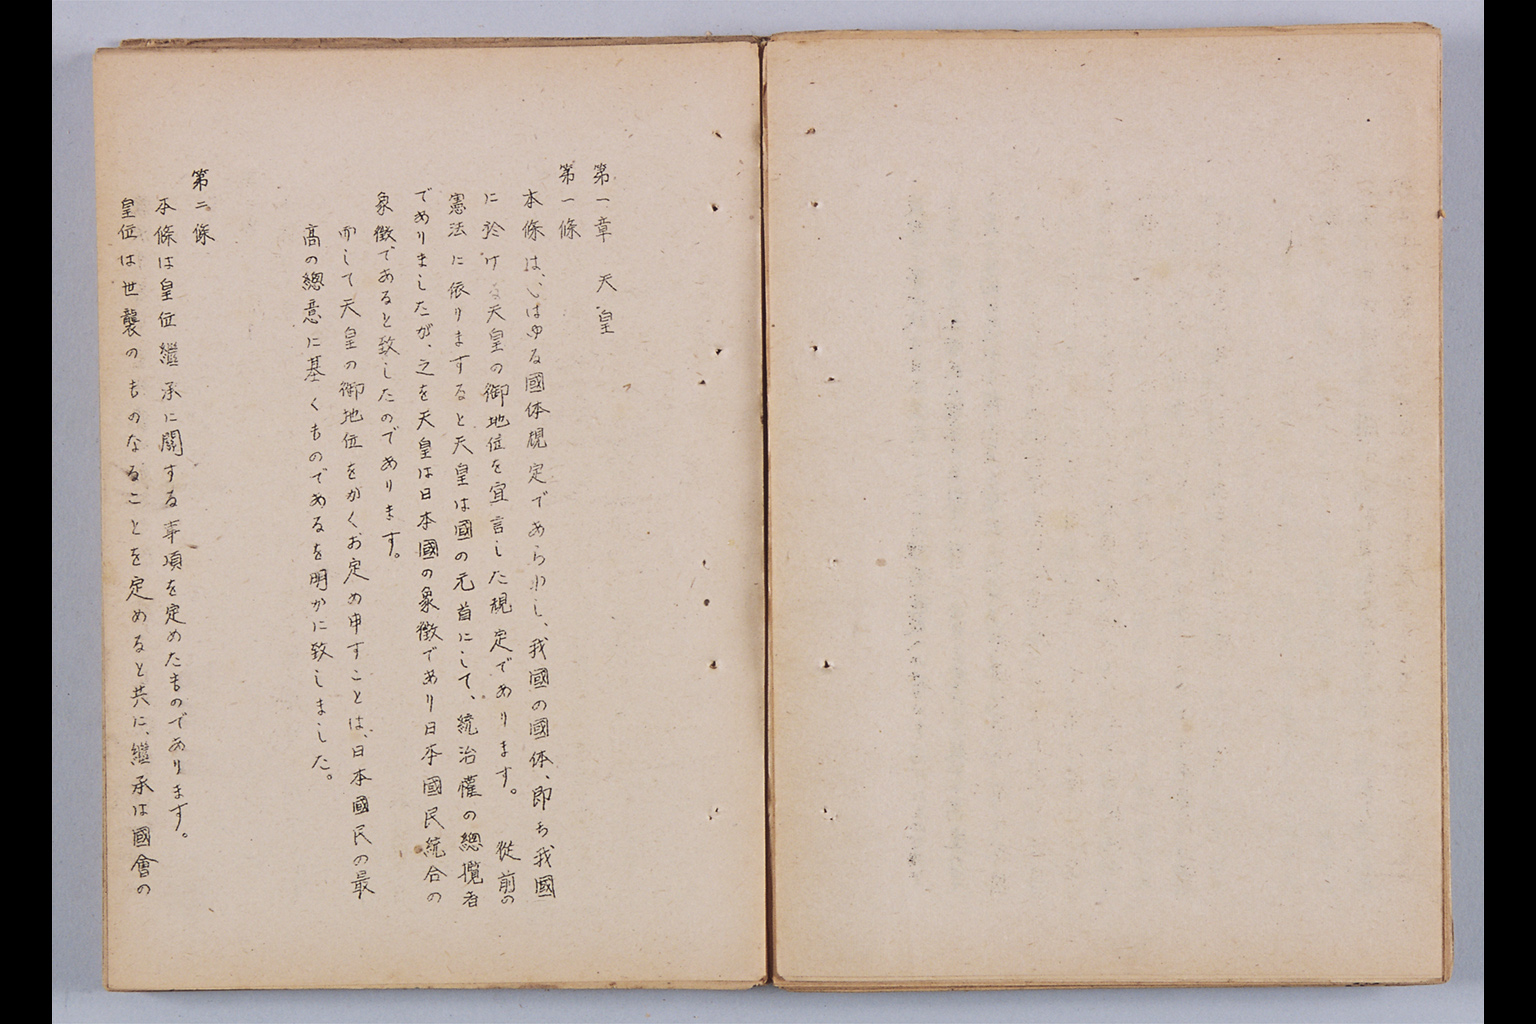 第一章　天皇
第一條
本條は、いはゆる國体規定であられし、我國の國体、即ち我國
に於ける天皇の御地位を宣言した規定であります。　從前の
憲法に依りますると天皇は國の元首にして、統治權の總攬者
でありましたが、之を天皇は日本國の象徴であり日本國民統合の
象徴であると致したのであります。
而して天皇の御地位をかくお定め申すことは、日本國民の最
高の總意に基くものであるを明かに致しました。
第二條
本條は皇位繼承に關する事項を定めたものであります。
皇位は世襲のものなることを定めると共に、繼承は國會の